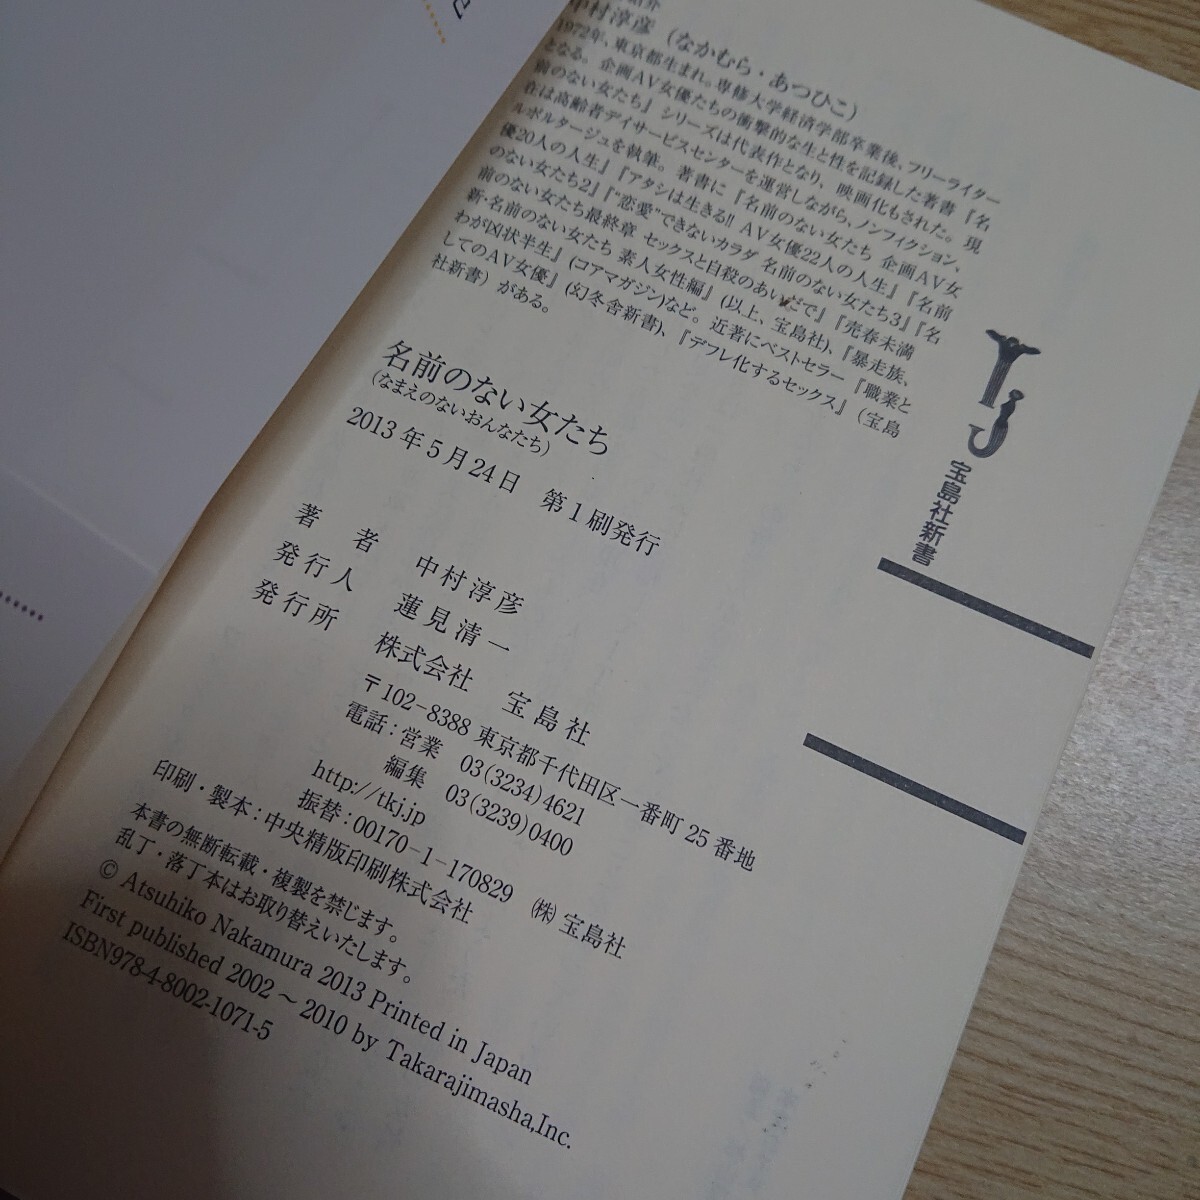 中村淳彦（なかむら・あつひこ）
1972年、東京都生まれ。専修大学経済学部卒業後、フリーライター
となる。企画AV女優たちの衝撃的な生と性を記録した著書『名
前のない女たち』シリーズは代表作となり、映画化もされた。現
在は高齢者デイサービスセンターを運営しながら、ノンフィクション、
ルポルタージュを執筆。著書に『名前のない女たち 企画AV女
優20人の人生』『アタシは生きる!! AV女優22人の人生』『名前
のない女たち2』『“恋愛”できないカラダ 名前のない女たち3』『名
前のない女たち最終章 セックスと自殺のあいだで』『売春未満
新・名前のない女たち 素人女性編』(以上、宝島社)、『暴走族、
わが凶状半生』(コアマガジン)など。近著にベストセラー『職業と
してのAV女優』(幻冬舎新書)、『デフレ化するセックス』（宝島
社新書）がある。
宝島社新書
名前のない女たち
(なまえのないおんなたち)
2013年5月24日 第1刷発行
著者 中村淳彦
発行人 蓮見清一
発行所 株式会社 宝島社
〒102-8388 東京都千代田区一番町25番地
電話：営業 03(3234)4621
編集 03(3239)0400
http://tkj.jp
振替：00170-1-170829 ㈱宝島社
印刷・製本：中央精版印刷株式会社
本書の無断転載・複製を禁じます。
乱丁・落丁本はお取り替えいたします。
© Atsuhiko Nakamura 2013 Printed in Japan
First published 2002～2010 by Takarajimasha,Inc.
ISBN978-4-8002-1071-5